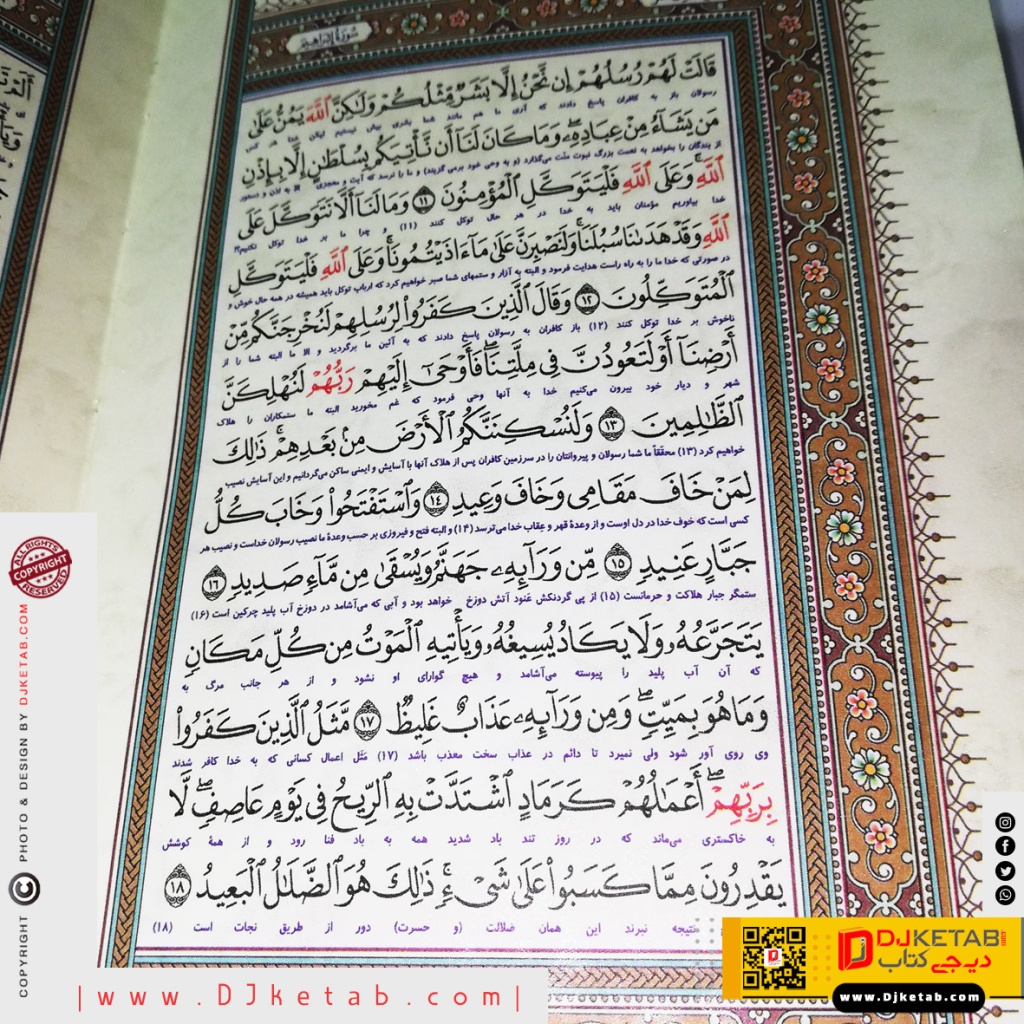 سورة إبراهيم
قَالَتْ لَهُمْ رُسُلُهُمْ إِن نَّحْنُ إِلَّا بَشَرٌ مِّثْلُكُمْ وَلَٰكِنَّ ٱللَّهَ يَمُنُّ عَلَىٰ
رسولان باز به کافران پاسخ دادند که آری ما هم مانند شما بشری بیش نیستیم لیکن خدا هر کس
مَن يَشَآءُ مِنْ عِبَادِهِۦۖ وَمَا كَانَ لَنَآ أَن نَّأْتِيَكُم بِسُلْطَٰنٍ إِلَّا بِإِذْنِ
از بندگان را بخواهد به نعمت بزرگ نبوت منّت می‌گذارد (و به وحی خود برمی گزیند) و ما را نرسد که آیت و معجزی الا به اذن و دستور
ٱللَّهِۚ وَعَلَى ٱللَّهِ فَلْيَتَوَكَّلِ ٱلْمُؤْمِنُونَ ۝١١ وَمَا لَنَآ أَلَّا نَتَوَكَّلَ عَلَى
خدا بیاوریم مؤمنان باید به خدا در هر حال توکل کنند (۱۱) و چرا ما بر خدا توکل نکنیم؟!
ٱللَّهِ وَقَدْ هَدَىٰنَا سُبُلَنَاۚ وَلَنَصْبِرَنَّ عَلَىٰ مَآ ءَاذَيْتُمُونَاۚ وَعَلَى ٱللَّهِ فَلْيَتَوَكَّلِ
در صورتی که خدا ما را به راه راست هدایت فرمود و البته به آزار و ستمهای شما صبر خواهیم کرد که ارباب توکل باید همیشه در همه حال خوش و
ٱلْمُتَوَكِّلُونَ ۝١٢ وَقَالَ ٱلَّذِينَ كَفَرُوا۟ لِرُسُلِهِمْ لَنُخْرِجَنَّكُم مِّنْ
ناخوش بر خدا توکل کنند (۱۲) باز کافران به رسولان پاسخ دادند که به آئین ما برگردید و الا ما البته شما را از
أَرْضِنَآ أَوْ لَتَعُودُنَّ فِى مِلَّتِنَاۖ فَأَوْحَىٰٓ إِلَيْهِمْ رَبُّهُمْ لَنُهْلِكَنَّ
شهر و دیار خود بیرون می‌کنیم خدا به آنها وحی فرمود که غم مخورید البته ما ستمکاران را هلاک
ٱلظَّٰلِمِينَ ۝١٣ وَلَنُسْكِنَنَّكُمُ ٱلْأَرْضَ مِنۢ بَعْدِهِمْۚ ذَٰلِكَ
خواهیم کرد (۱۳) محققاً ما شما رسولان و پیروانتان را در سرزمین کافران پس از هلاک آنها با آسایش و ایمنی ساکن می‌گردانیم و این آسایش نصیب
لِمَنْ خَافَ مَقَامِى وَخَافَ وَعِيدِ ۝١٤ وَٱسْتَفْتَحُوا۟ وَخَابَ كُلُّ
کسی است که خوف خدا در دل اوست و از وعدهٔ قهر و عِقاب خدا می‌ترسد (۱۴) و البته فتح و فیروزی بر حسب وعدهٔ ما نصیب رسولان خداست و نصیب هر
جَبَّارٍ عَنِيدٍ ۝١٥ مِّن وَرَآئِهِۦ جَهَنَّمُ وَيُسْقَىٰ مِن مَّآءٍ صَدِيدٍ ۝١٦
ستمگر جبار هلاکت و حرمانست (۱۵) از پی گردنکش عَنود آتش دوزخ خواهد بود و آبی که می‌آشامد در دوزخ آب پلید چرکین است (۱۶)
يَتَجَرَّعُهُۥ وَلَا يَكَادُ يُسِيغُهُۥ وَيَأْتِيهِ ٱلْمَوْتُ مِن كُلِّ مَكَانٍ
که آن آب پلید را پیوسته می‌آشامد و هیچ گوارای او نشود و از هر جانب مرگ به
وَمَا هُوَ بِمَيِّتٍۖ وَمِن وَرَآئِهِۦ عَذَابٌ غَلِيظٌ ۝١٧ مَّثَلُ ٱلَّذِينَ كَفَرُوا۟
وی روی آور شود ولی نمیرد تا دائم در عذاب سخت معذب باشد (۱۷) مَثَل اعمال کسانی که به خدا کافر شدند
بِرَبِّهِمْۖ أَعْمَٰلُهُمْ كَرَمَادٍ ٱشْتَدَّتْ بِهِ ٱلرِّيحُ فِى يَوْمٍ عَاصِفٍۖ لَّا
به خاکستری می‌ماند که در روز تند باد شدید همه به باد فنا رود و از همهٔ کوشش
يَقْدِرُونَ مِمَّا كَسَبُوا۟ عَلَىٰ شَىْءٍۚ ذَٰلِكَ هُوَ ٱلضَّلَٰلُ ٱلْبَعِيدُ ۝١٨
نتیجه نبرند این همان ضلالت (و حسرت) دور از طریق نجات است (۱۸)
ALL RIGHTS
COPYRIGHT
RESERVED
COPYRIGHT © PHOTO & DESIGN BY DJKETAB.COM
|www.DJketab.com|
DJKETAB.COM
دیجی کتاب
www.Djketab.com